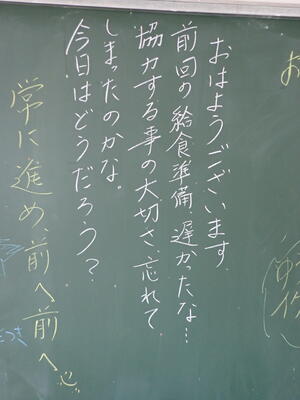 おはようございます。
前回の給食準備、遅かったな…
協力する事の大切さ、忘れて
しまったのかな。
今日はどうだろう？
常に進め、前へ前へ